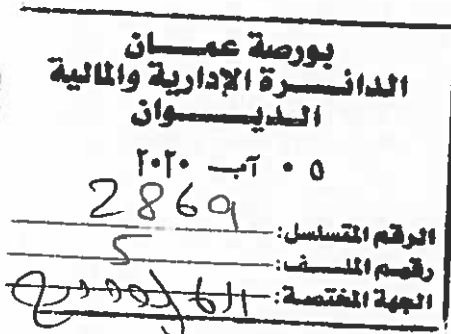 بورصة عمـــان
الدائـــرة الإدارية والمالية
الديـــوان
٠٥ آب ٢٠٢٠
الرقم المتسلسل: 2869
رقم الملف: 5
الجهة المختصة: